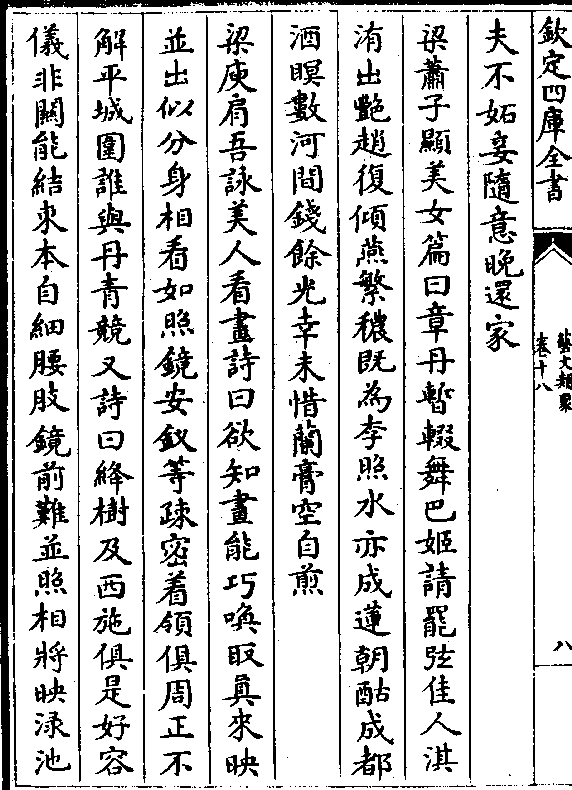 欽定四庫全書
藝文類聚
卷十八
八
夫不妬妾隨意晚還家
梁蕭子顯美女篇曰章丹暫輟舞巴姬請罷弦佳人淇
洧出艷趙復傾燕繁穠既為李照水亦成蓮朝酤成都
酒暝數河間錢餘光幸未惜蘭膏空自煎
梁庾肩吾詠美人看畫詩曰欲知畫能巧喚取真來映
並出似分身相看如照鏡安釵等疎密着領俱周正不
解平城圍誰與丹青競又詩曰絳樹及西施俱是好容
儀非關能結束本自細腰肢鏡前難並照相將映渌池